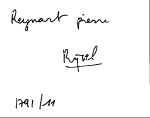 Reynart pierre
1791/11